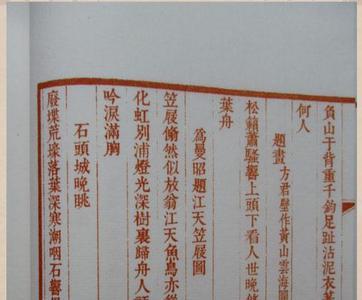 負山干背重千鈞足趾沾泥衣
何人
題畫 方君璧作黃山雲海圖
松籟蕭騷響上頭下看人世晚
葉舟
為曼昭題江天笠屐圖
笠屐翛然似放翁江天魚鳥亦從
化虹別浦燈光深樹裏歸舟人語
吟淚滿胸
石頭城晚眺
廢堞荒壕落葉深寒潮咽石響